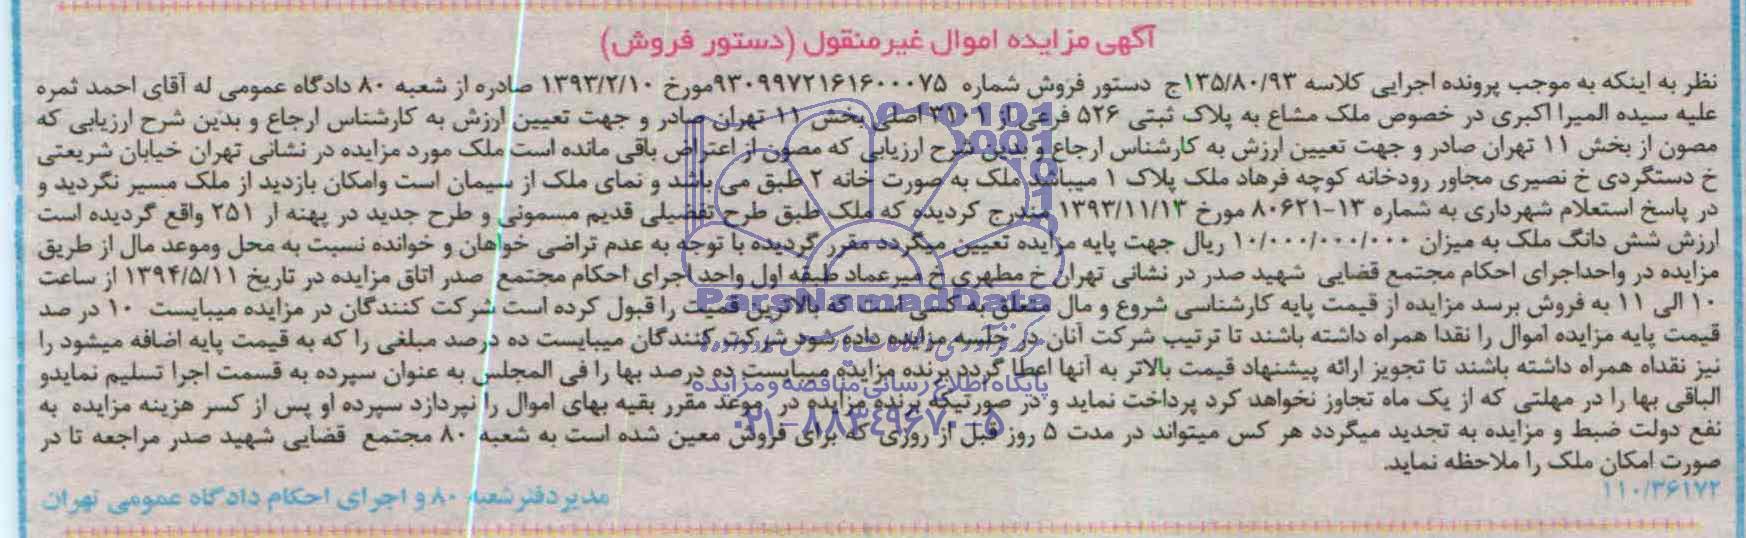 آگهی مزایده اموال غیرمنقول (دستور فروش)
نظر به اینکه به موجب پرونده اجرایی کلاسه ۱۳۵/۸۰/۹۳ج دستور فروش شماره ۹۳۰۹۹۷۲۱۶۱۶۰۰۰۷۵مورخ ۱۳۹۳/۲/۱۰ صادره از شعبه ۸۰ دادگاه عمومی له آقای احمد ثمره
علیه سیده المیرا اکبری در خصوص ملک مشاع به پلاک ثبتی ۵۲۶ فرعی از ۳۱۰۶ اصلی بخش ۱۱ تهران صادر و جهت تعیین ارزش به کارشناس ارجاع و بدین شرح ارزیابی که
مصون از بخش ۱۱ تهران صادر و جهت تعیین ارزش به کارشناس ارجاع و بدین شرح ارزیابی که مصون از اعتراض باقی مانده است ملک مورد مزایده در نشانی تهران خیابان شریعتی
خ دستگردی خ نصیری مجاور رودخانه کوچه فرهاد ملک پلاک ۱ میباشد ملک به صورت خانه ۲ طبق می باشد و نمای ملک از سیمان است وامکان بازدید از ملک مسیر نگردید و
در پاسخ استعلام شهرداری به شماره ۱۳-۸۰۶۲۱ مورخ ۱۳۹۳/۱۱/۱۳ مندرج کردیده که ملک طبق طرح تفضیلی قدیم مسمونی و طرح جدید در پهنه ار ۲۵۱ واقع گردیده است
ارزش شش دانگ ملک به میزان ۱۰/۰۰۰/۰۰۰/۰۰۰ ریال جهت پایه مزایده تعیین میگردد مقرر گردیده با توجه به عدم تراضی خواهان و خوانده نسبت به محل وموعد مال از طریق
مزایده در واحداجرای احکام مجتمع قضایی شهید صدر در نشانی تهران خ مطهری خ میرعماد طبقه اول واحد اجرای احکام مجتمع صدر اتاق مزایده در تاریخ ۱۳۹۴/۵/۱۱ از ساعت
۱۰ الی ۱۱ به فروش برسد مزایده از قیمت پایه کارشناسی شروع و مال متعلق به کسی است که بالاترین قمیت را قبول کرده است شرکت کنندگان در مزایده میبایست ۱۰ در صد
قیمت پایه مزایده اموال را نقدا همراه داشته باشند تا ترتیب شرکت آنان در جلسه مزایده داده شود شرکت کنندگان میبایست ده درصد مبلغی را که به قیمت پایه اضافه میشود را
نیز نقداه همراه داشته باشند تا تجویز ارائه پیشنهاد قیمت بالاتر به آنها اعطا گردد برنده مزایده میبایست ده درصد بها را فی المجلس به عنوان سپرده به قسمت اجرا تسلیم نمایدو
الباقی بها را در مهلتی که از یک ماه تجاوز نخواهد کرد پرداخت نماید و در صورتیکه برنده مزایده در موعد مقرر بقیه بهای اموال را نپردازد سپرده او پس از کسر هزینه مزایده به
نفع دولت ضبط و مزایده به تجدید میگردد هر کس میتواند در مدت ۵ روز قبل از روزی که برای فروش معین شده است به شعبه ۸۰ مجتمع قضایی شهید صدر مراجعه تا در
صورت امکان ملک را ملاحظه نماید.
۱۱۰/۳۶۱۷۲
مدیردفترشعبه ۸۰ و اجرای احکام دادگاه عمومی تهران
ParsNamadData
پایگاه اطلاع رسانی مناقصه و مزایده
۰۲۱-۸۸۳۴۹۶۷۰-۵